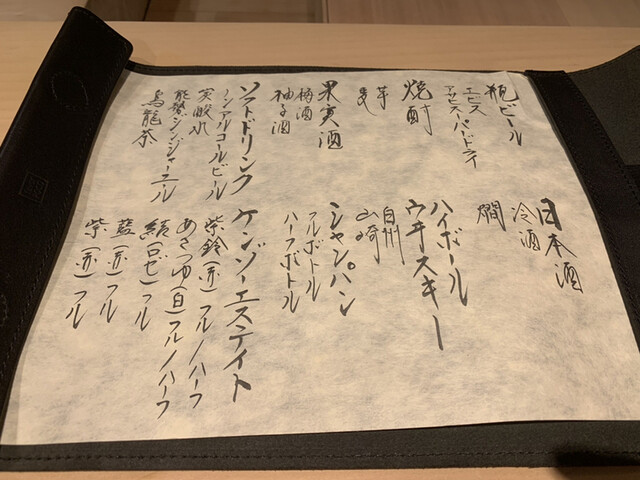 瓶ビール
エビス
アサヒスーパードライ
焼酎
芋
麦
果実酒
梅酒
柚子酒
ソフトドリンク
ノンアルコールビール
炭酸水
能勢ジンジャーエール
烏龍茶
日本酒
冷酒
燗
ハイボール
ウヰスキー
白州
山崎
シャンパン
フルボトル
ハーフボトル
ケンゾーエステイト
紫鈴(赤)フル/ハーフ
あさつゆ(白)フル/ハーフ
結(ロゼ)フル
藍(赤)フル
紫(赤)フル